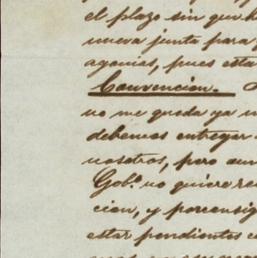 el plazo sin que h
nueva junta para
agonias, pues esta
Convencion.
no me queda ya
debemos entregar
nosotros, pero aun
Gob.º no quiere re
cion, y por consig
estar pendientes